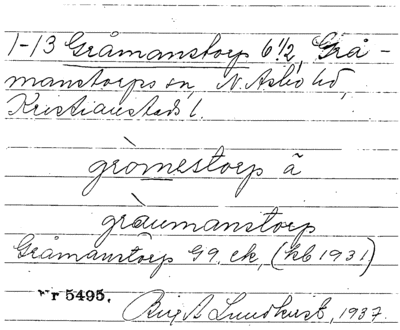 1-13 Gråmanstorp 6 1/2, Grå-
manstorps sn, N. Asbo hd,
Kristianstads l.
gròmestorp ã
gràumanstorp
Gråmanstorp G9. ek, (kb 1931)
Nr 5495.
Birg. A Lundkvist, 1937.